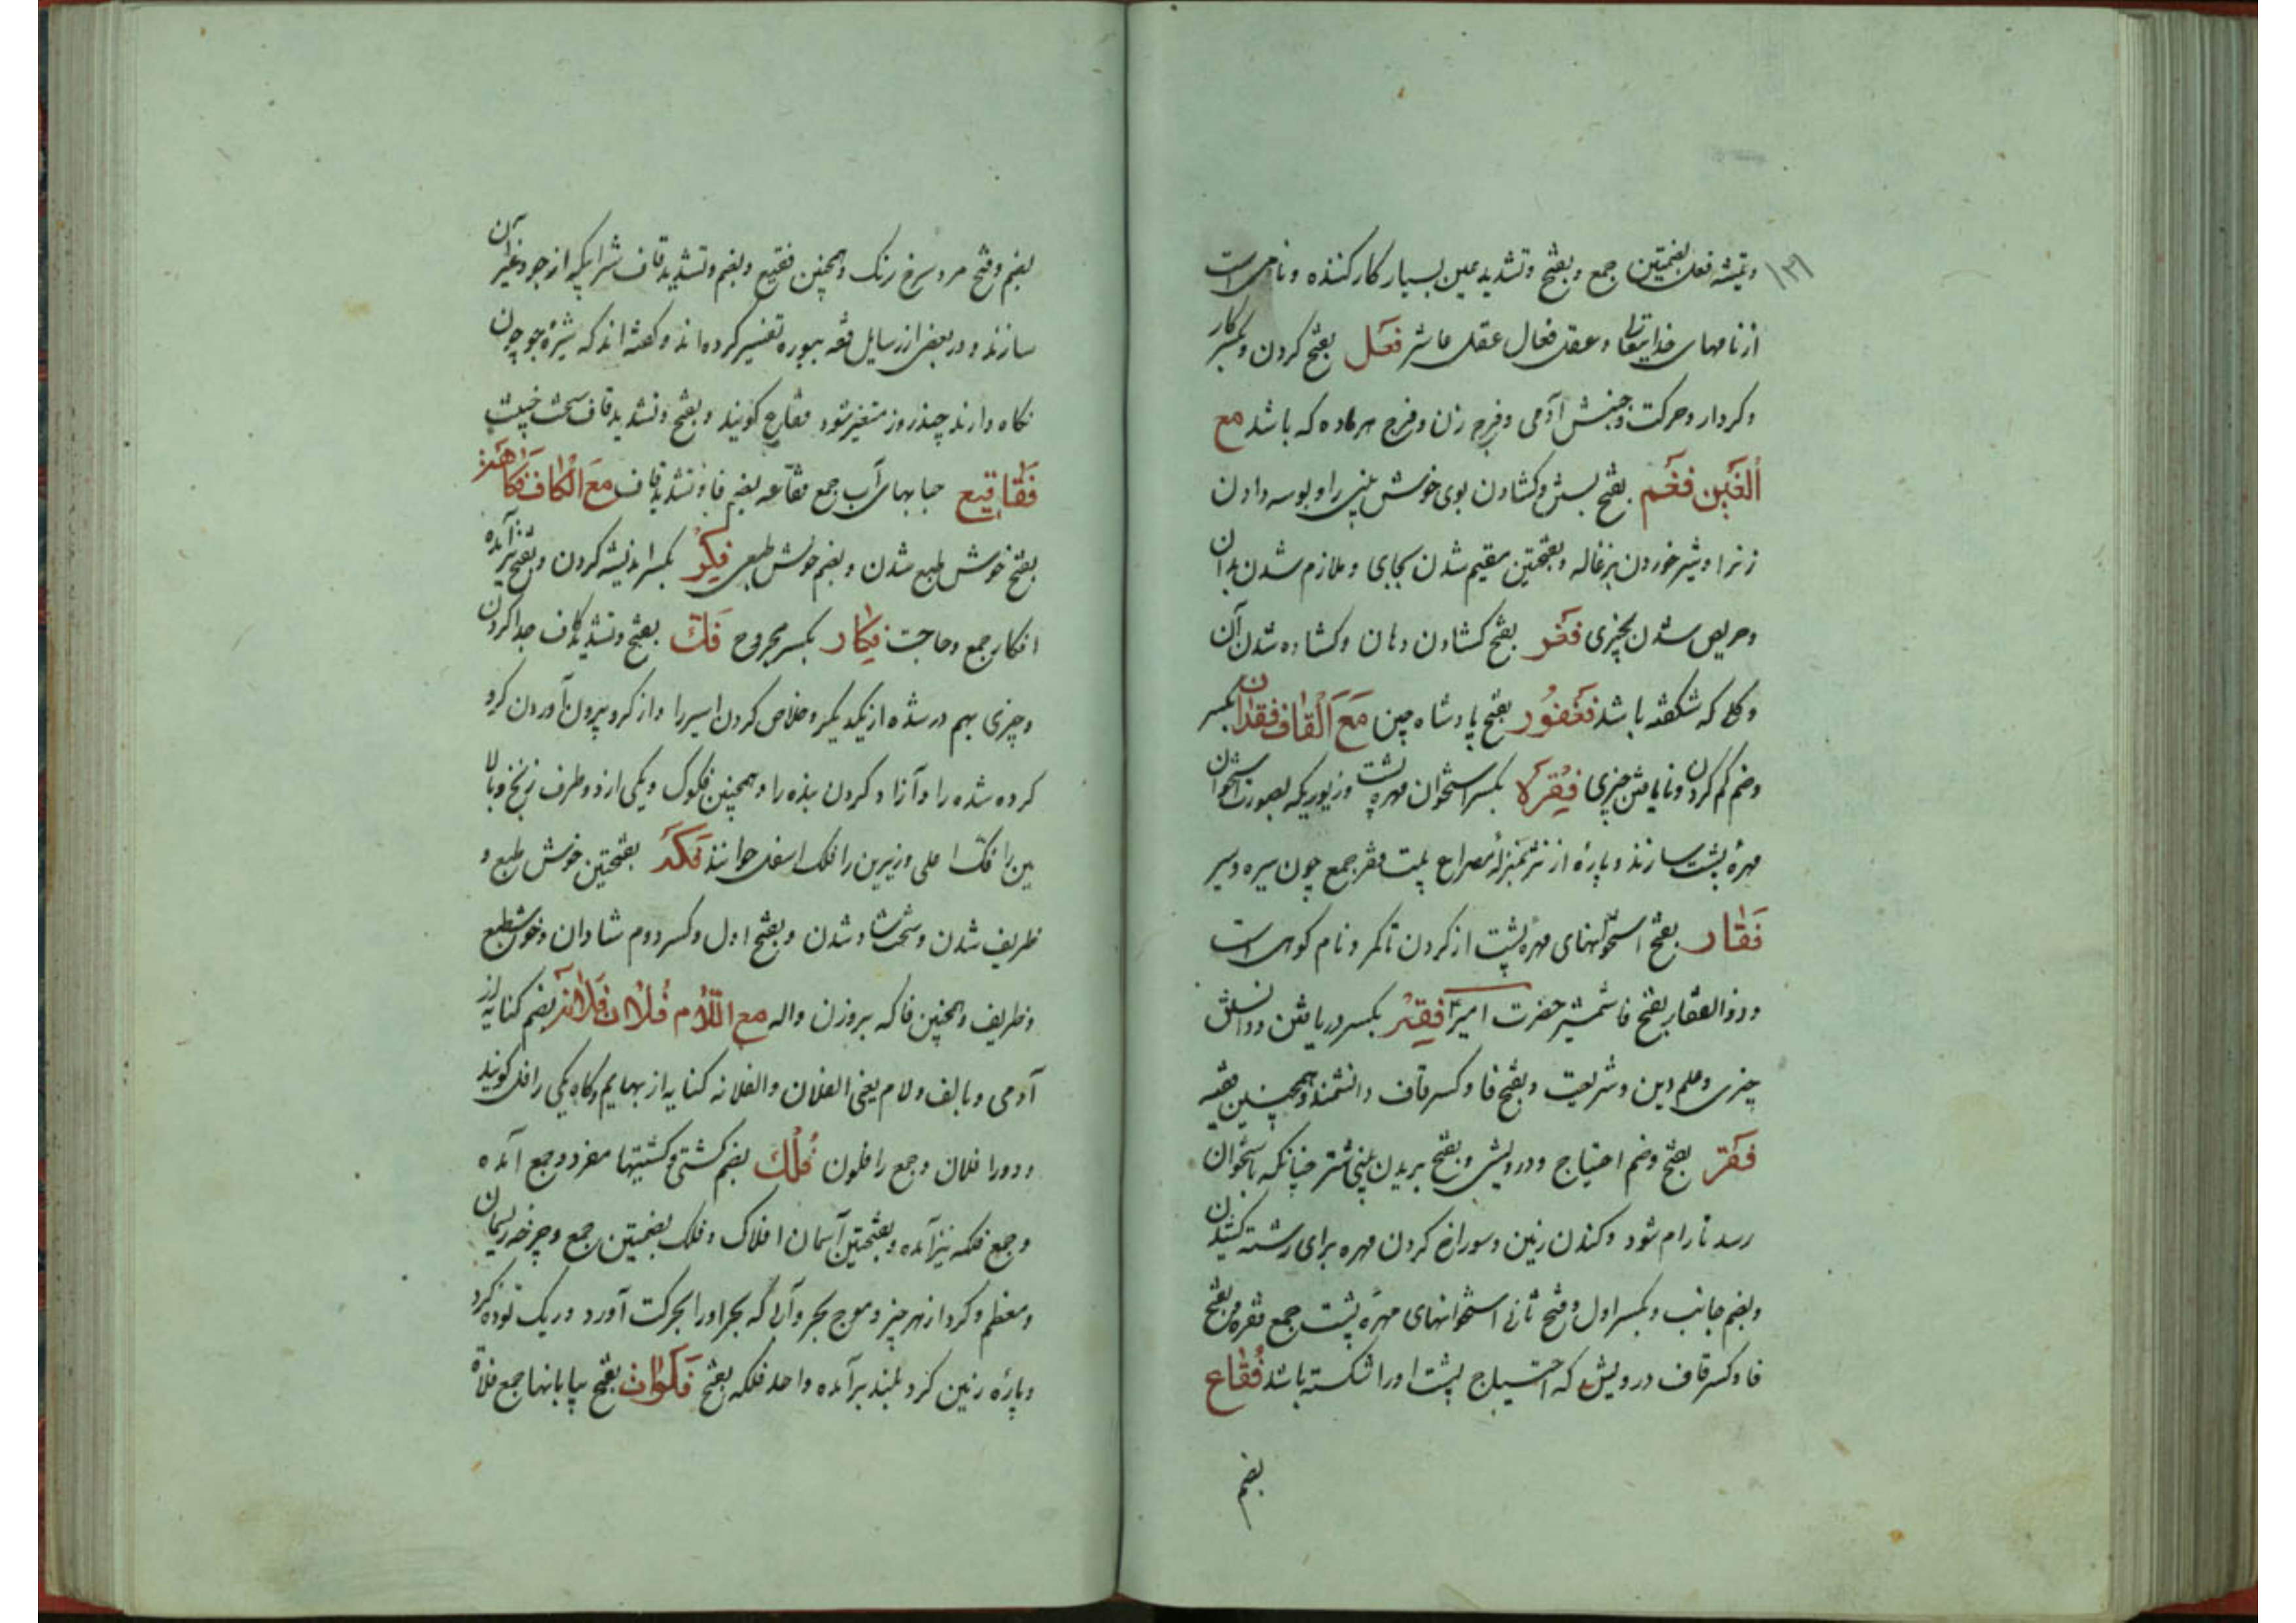 وتیشه فعل بضمتین جمع وبفتح وتشدید عین بسیار کار کننده ونامی است
از نامهای خدایتعالی وعقل فعال عقل عاشر فعل بفتح کردن وبکسر کار
وکردار وحرکت وجنبش آدمی وفرج زن وفرج هر ماده که باشد مع
الغین فغم بفتح بستن وکشادن بوی خوش بینی را وبوسه دادن
زنرا وشیر خوردن بزغاله وبفتحتین مقیم شدن بجای وملازم شدن بدان
وحریص شدن بچیزی فغر بفتح کشادن دهان وکشاده شدن آن
وکلی که شکفته باشد فغفور بفتح پادشاه چین مع القاف فقدان بکسر
وضم کم کردن ونایافتن چیزی فقرة بکسر استخوان مهره پشت وزیوریکه بصورت استخوان
مهرهٔ پشت سازند وپارهٔ از نثر بمنزلهٔ مصراع بیت فقر جمع چون سیره وسیر
فقار بفتح استخوانهای مهره پشت از کردن تا کمر ونام کوهی است
وذوالفقار بفتح فا شمشیر حضرت امیر فقه بکسر دریافتن ودانستن
چیزی وعلم دین وشریعت وبفتح فا وکسر قاف دانشمند وهمچنین فقیه
فقر بفتح وضم احتیاج ودرویشی وبفتح بریدن بینی شتر چنانکه باستخوان
رسد تا رام شود وکندن زمین وسوراخ کردن مهره برای رشته کشیدن
وبضم جانب وبکسر اول وفتح ثانی استخوانهای مهرهٔ پشت جمع فقره وبفتح
فا وکسر قاف درویش که احتیاج پشت اورا شکسته باشد فقاع
بضم
بضم وفتح مرد سرخ رنک وهمچنین فقیع وبضم وتشدید قاف شرابیکه از جو وغیر آن
سازند ودر بعضی از رسایل فقه ببوزه تفسیر کرده اند وکفته اند که شیرهٔ جو چون
نکاه دارند چند روز متغیر شود فقاع کویند وبفتح وتشدید قاف سخت خبیث
فقاقیع حبابهای آب جمع فقاعه بضم فا وتشدید قاف مع الکاف فکاهة
بفتح خوش طبع شدن وبضم خوش طبعی فکر بکسر اندیشه کردن وبفتح نیز آمده
افکار جمع وحاجت فکار بکسر مجروح فک بفتح وتشدید کاف جدا کردن
وچیزی بهم در شده از یکدیکر وخلاص کردن اسیر را واز کرو بیرون آوردن کرو
کرده شده را وآزاد کردن بنده را وهمچنین فکوک ویکی از دو طرف زنخ وبالا
یین را فک اعلی وزیرین را فک اسفل خوانند فکه بفتحتین خوش طبع و
ظریف شدن وسخت شاد شدن وبفتح اول وکسر دوم شادان وخوش طبع
وظریف وهمچنین فاکه بروزن واله مع اللام فلان فلانة بضم کنایه از
آدمی وبا لف ولام یعنی الفلان والفلانه کنایه از بهایم وکاهی یکی را فل کویند
ودورا فلان وجمع را فلون فلک بضم کشتی وکشتیها مفرد وجمع آمده
وجمع فلکه نیز آمده وبفتحتین آسمان افلاک وفلک بضمتین جمع وچرخه ریسمان
ومعظم وکرد از هر چیز وموج بحر وآبی که بحر اورا بحرکت آورد وریک توده کرد
وپارهٔ زمین کرد بلند برآمده واحد فلکه بفتح فلوات بفتح بیابانها جمع فلاة